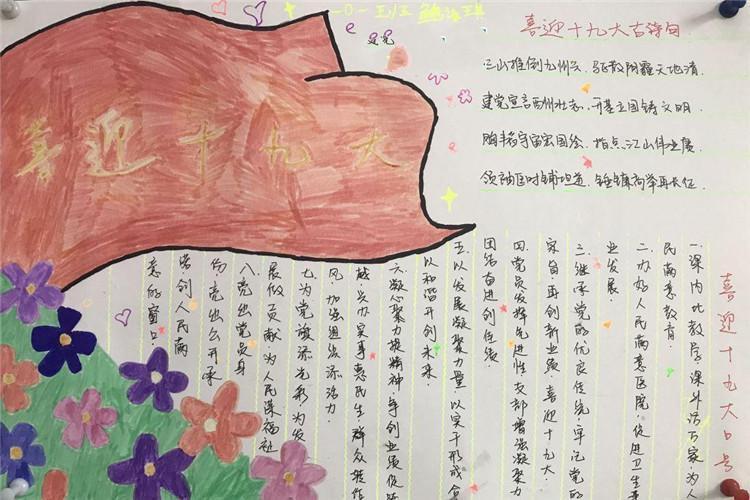 一〇一班
喜迎十九大古诗句
三山推倒九州云，驱散阴霾天地清。
建党宣言酉州壮志，开基立国铸文明。
胸丰韬宇宙家国绘，指点江山伟业展
领袖匡时铺坦道，锤镰高举再长征
喜迎十九大
喜迎十九大口号
一：课内比教学，课外访万家，为人
民满意教育
二、办好人民满意医院，促进卫生事
业发展
三：继承党的优良传统，牢记党的
宗旨，再创新业绩，喜迎十九大。
四党员发挥先进性，支部增强凝聚力
团结奋进创佳绩。
五以发展凝聚力量，以实干形成合
以和谐开创未来。
六凝心聚力提精神，争创业绩促
越，兴办实事惠民生，群众
风，加强组织添活力
七为党旗添光彩，为发
展做贡献，为人民谋福祉
八亮出党员身
份，亮出公开承
诺创人民满
意的窗口。